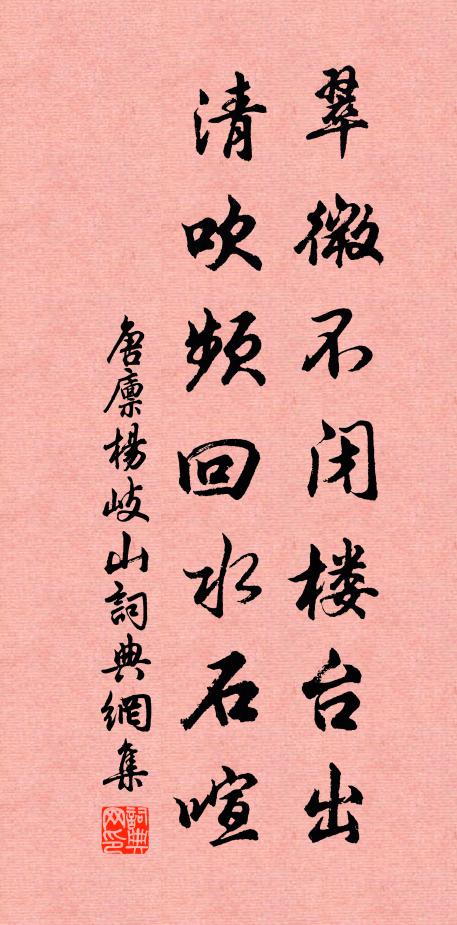 翠微不闭楼台出
清吹频回水石喧
唐廪楊岐山詞典網集
詞典网印